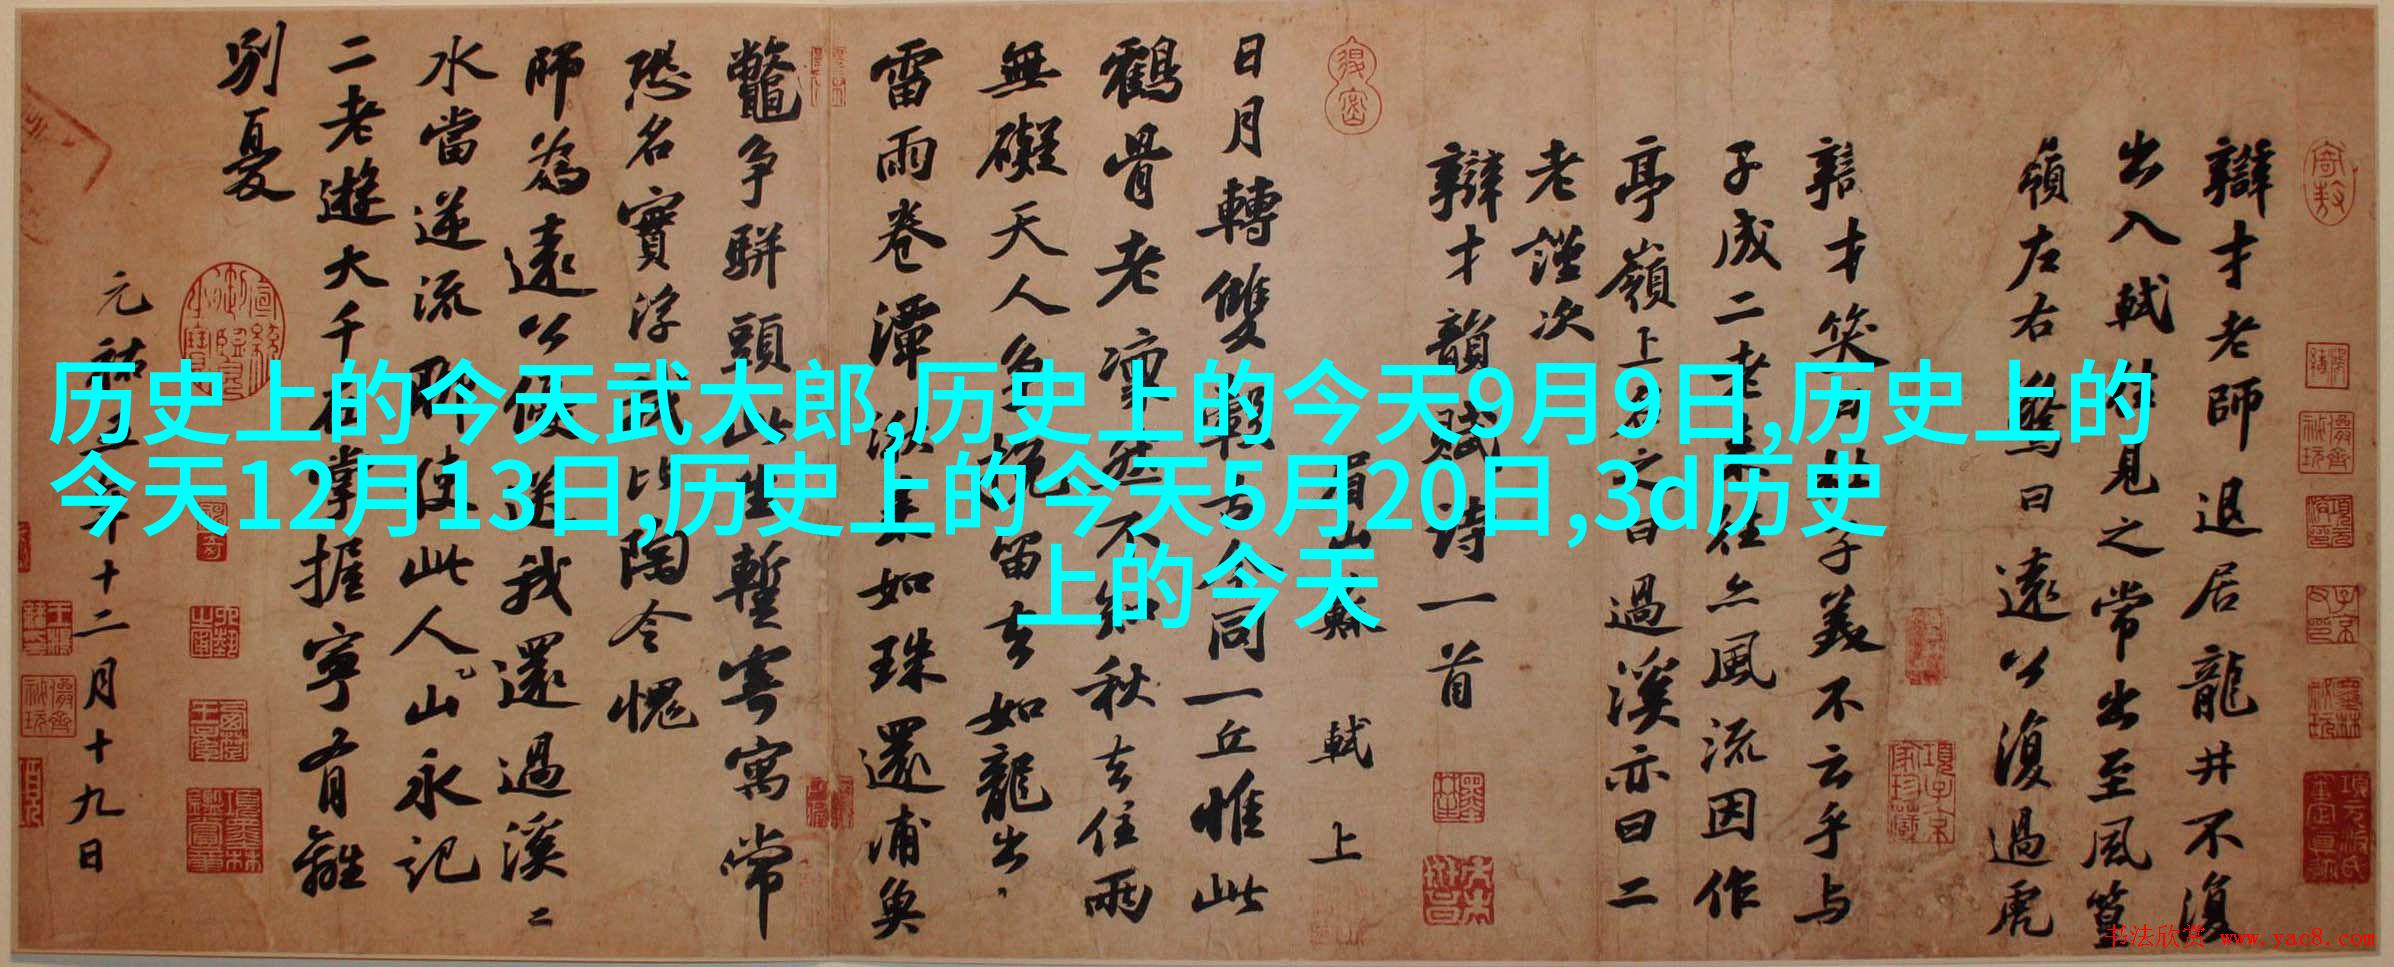 历史上的今天武大郎,历史上的今天9月9日,历史上的
今天12月13日,历史上的今天5月20日,3d历史
上的今天
辯才老師退居龍井不復
出入軾往見之常出至風篁
嶺左右驚曰遠公復過虎
辯才笑曰杜子美不云乎与
子成二老來往亦風流因作
亭嶺上名之曰過溪亦曰二
老謹次
辯才韻賦詩一首
眉山蘇軾上
日月轉雙轂古今同一丘惟此
鶴骨老凜然不知秋去住兩
無礙天人爭挽留去如龍出
雷雨卷潭湫來如珠還浦魚
鼈爭駢頭此生暫寄寓常
恐名實浮我比陶令愧
師為遠公優送我還過溪二
水當逆流聊使此人山永記
二老遊大千在掌握寧有離
別憂
元祐五年十二月十九日
书法欣赏 www.yac8.com